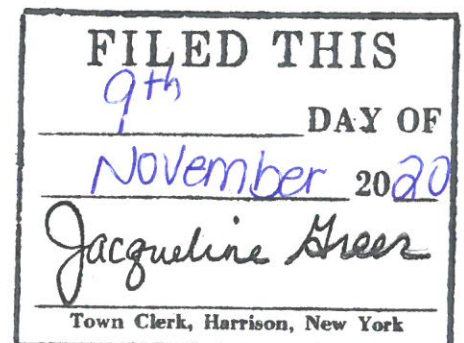 FILED THIS
9th
DAY OF
November 2020
Jacqueline Greer
Town Clerk, Harrison, New York